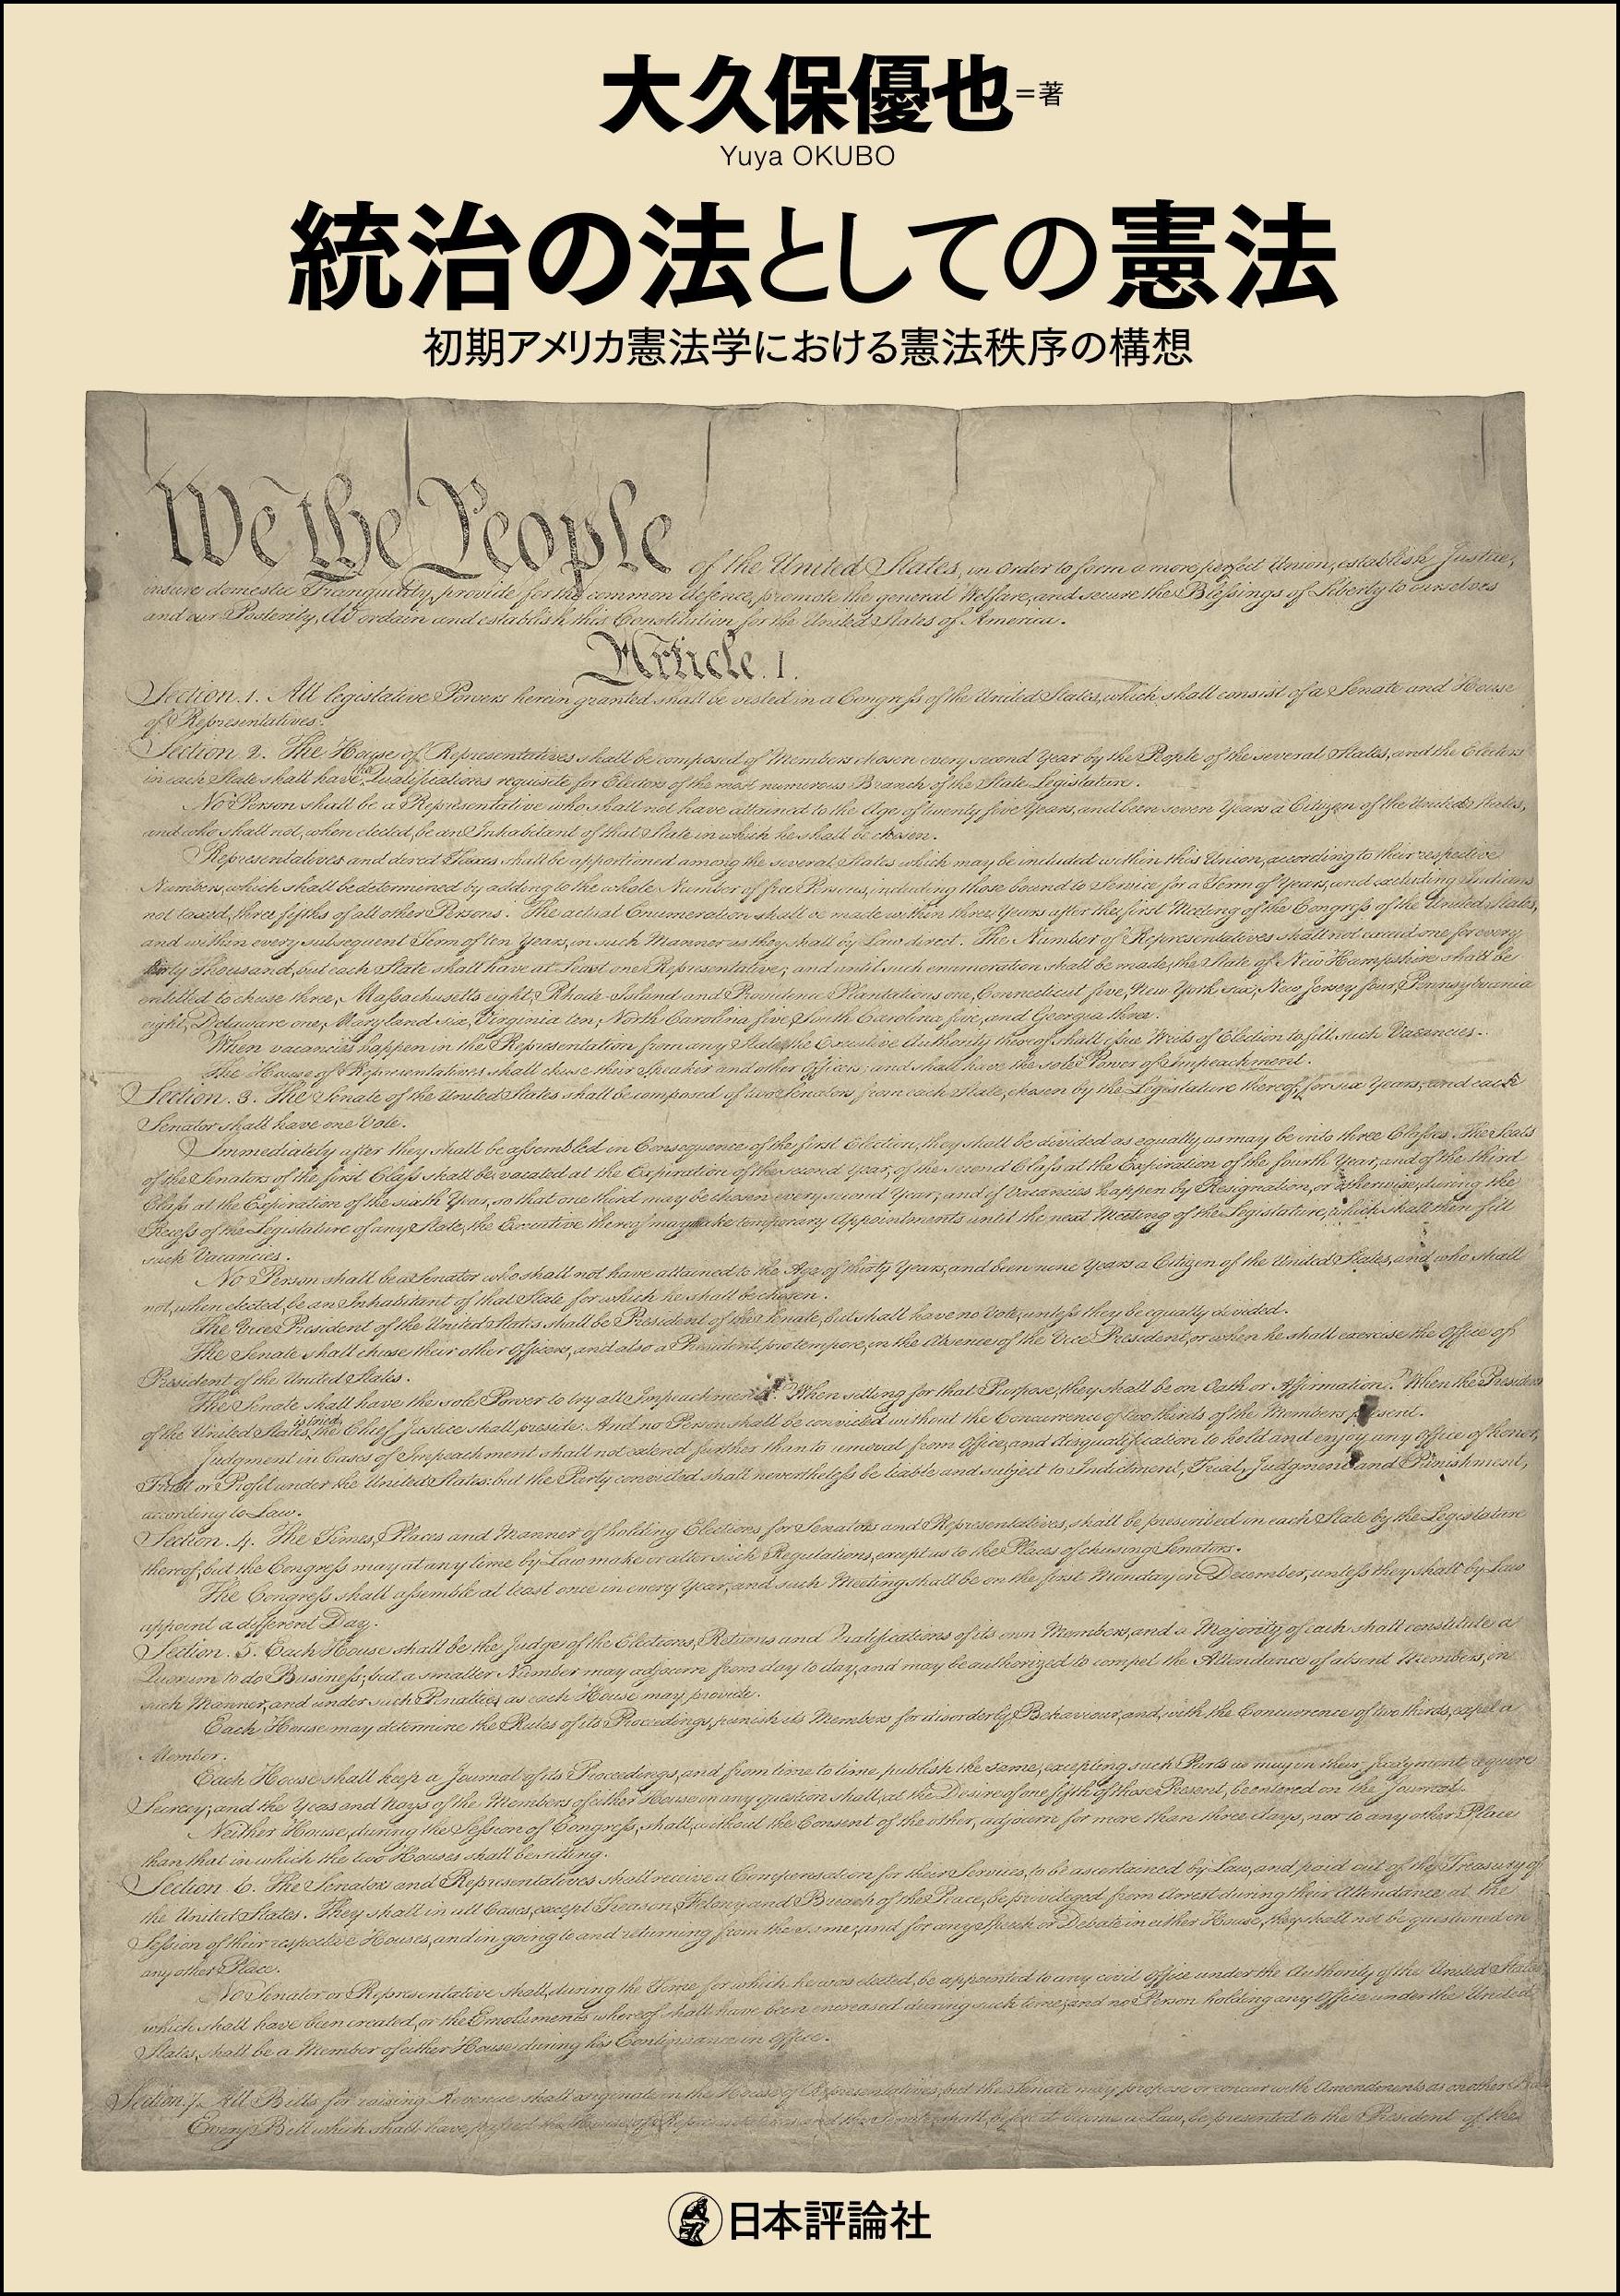 大久保優也=著
Yuya OKUBO
統治の法としての憲法
初期アメリカ憲法学における憲法秩序の構想
We the People of the United States, in Order to form a more perfect Union, establish Justice,
insure domestic Tranquility, provide for the common defence, promote the general Welfare, and secure the Blessings of Liberty to ourselves
and our Posterity, do ordain and establish this Constitution for the United States of America.
Article. I.
Section. 1. All legislative Powers herein granted shall be vested in a Congress of the United States, which shall consist of a Senate and House
of Representatives.
Section. 2. The House of Representatives shall be composed of Members chosen every second Year by the People of the several States, and the Electors
in each State shall have the Qualifications requisite for Electors of the most numerous Branch of the State Legislature.
No Person shall be a Representative who shall not have attained to the Age of twenty five Years, and been seven Years a Citizen of the United States,
and who shall not, when elected, be an Inhabitant of that State in which he shall be chosen.
Representatives and direct Taxes shall be apportioned among the several States which may be included within this Union, according to their respective
Numbers, which shall be determined by adding to the whole Number of free Persons, including those bound to Service for a Term of Years, and excluding Indians
not taxed, three fifths of all other Persons. The actual Enumeration shall be made within three Years after the first Meeting of the Congress of the United States,
and within every subsequent Term of ten Years, in such Manner as they shall by Law direct. The Number of Representatives shall not exceed one for every
thirty Thousand, but each State shall have at Least one Representative; and until such enumeration shall be made, the State of New Hampshire shall be
entitled to chuse three, Massachusetts eight, Rhode-Island and Providence Plantations one, Connecticut five, New-York six, New Jersey four, Pennsylvania
eight, Delaware one, Maryland six, Virginia ten, North Carolina five, South Carolina five, and Georgia three.
When vacancies happen in the Representation from any State, the Executive Authority thereof shall issue Writs of Election to fill such Vacancies.
The House of Representatives shall chuse their Speaker and other Officers; and shall have the sole Power of Impeachment.
Section. 3. The Senate of the United States shall be composed of two Senators from each State, chosen by the Legislature thereof, for six Years; and each
Senator shall have one Vote.
Immediately after they shall be assembled in Consequence of the first Election, they shall be divided as equally as may be into three Classes. The Seats
of the Senators of the first Class shall be vacated at the Expiration of the second Year, of the second Class at the Expiration of the fourth Year, and of the third
Class at the Expiration of the sixth Year, so that one third may be chosen every second Year; and if Vacancies happen by Resignation, or otherwise, during the
Recess of the Legislature of any State, the Executive thereof may make temporary Appointments until the next Meeting of the Legislature, which shall then fill
such Vacancies.
No Person shall be a Senator who shall not have attained to the Age of thirty Years, and been nine Years a Citizen of the United States, and who shall
not, when elected, be an Inhabitant of that State for which he shall be chosen.
The Vice President of the United States shall be President of the Senate, but shall have no Vote, unless they be equally divided.
The Senate shall chuse their other Officers, and also a President pro tempore, in the Absence of the Vice President, or when he shall exercise the Office of
President of the United States.
The Senate shall have the sole Power to try all Impeachments. When sitting for that Purpose, they shall be on Oath or Affirmation. When the President
of the United States is tried, the Chief Justice shall preside: And no Person shall be convicted without the Concurrence of two thirds of the Members present.
Judgment in Cases of Impeachment shall not extend further than to removal from Office, and disqualification to hold and enjoy any Office of honor,
Trust or Profit under the United States: but the Party convicted shall nevertheless be liable and subject to Indictment, Trial, Judgment and Punishment,
according to Law.
Section. 4. The Times, Places and Manner of holding Elections for Senators and Representatives, shall be prescribed in each State by the Legislature
thereof; but the Congress may at any time by Law make or alter such Regulations, except as to the Places of chusing Senators.
The Congress shall assemble at least once in every Year, and such Meeting shall be on the first Monday in December, unless they shall by Law
appoint a different Day.
Section. 5. Each House shall be the Judge of the Elections, Returns and Qualifications of its own Members, and a Majority of each shall constitute a
Quorum to do Business; but a smaller Number may adjourn from day to day, and may be authorized to compel the Attendance of absent Members, in
such Manner, and under such Penalties as each House may provide.
Each House may determine the Rules of its Proceedings, punish its Members for disorderly Behaviour, and, with the Concurrence of two thirds, expel a
Member.
Each House shall keep a Journal of its Proceedings, and from time to time publish the same, excepting such Parts as may in their Judgment require
Secrecy; and the Yeas and Nays of the Members of either House on any question shall, at the Desire of one fifth of those Present, be entered on the Journal.
Neither House, during the Session of Congress, shall, without the Consent of the other, adjourn for more than three days, nor to any other Place
than that in which the two Houses shall be sitting.
Section. 6. The Senators and Representatives shall receive a Compensation for their Services, to be ascertained by Law, and paid out of the Treasury of
the United States. They shall in all Cases, except Treason, Felony and Breach of the Peace, be privileged from Arrest during their Attendance at the
Session of their respective Houses, and in going to and returning from the same; and for any Speech or Debate in either House, they shall not be questioned in
any other Place.
No Senator or Representative shall, during the Time for which he was elected, be appointed to any civil Office under the Authority of the United States,
which shall have been created, or the Emoluments whereof shall have been encreased during such time; and no Person holding any Office under the United
States, shall be a Member of either House during his Continuance in Office.
Section. 7. All Bills for raising Revenue shall originate in the House of Representatives; but the Senate may propose or concur with Amendments as on other Bills.
Every Bill which shall have passed the House of Representatives and the Senate, shall, before it become a Law, be presented to the President of the
日本評論社